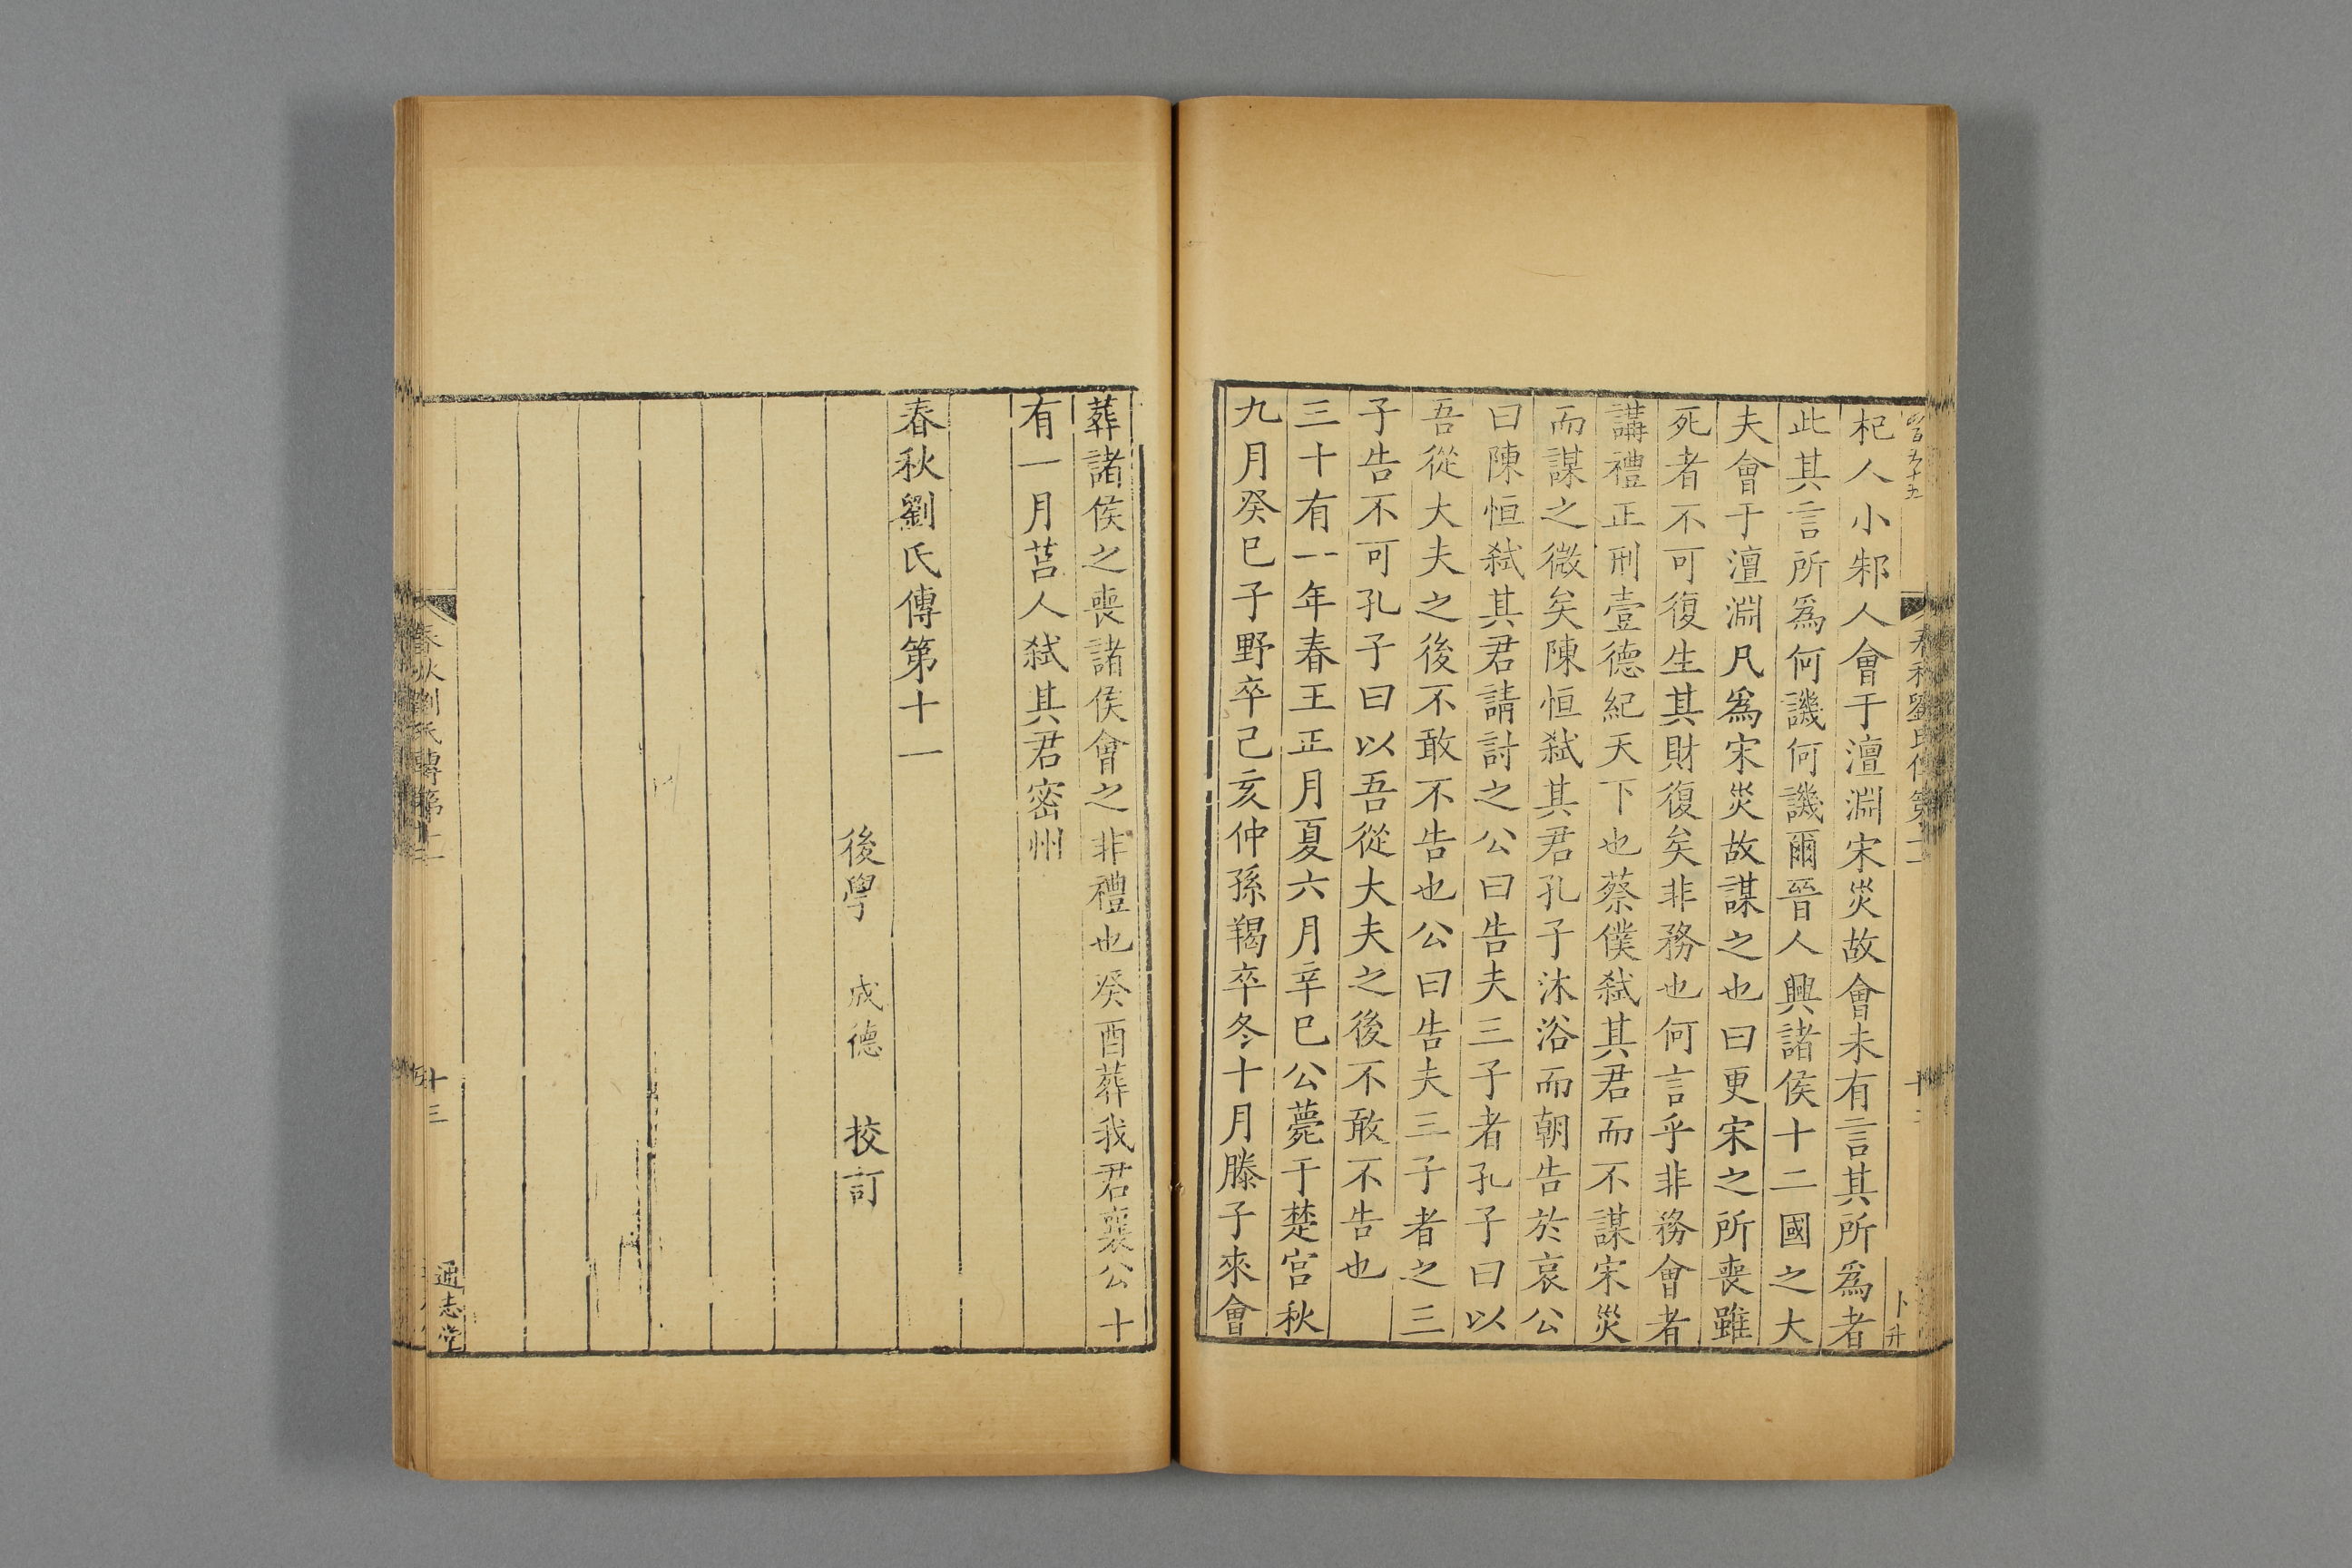 杞人小邾人會于澶淵宋災故會未有言其所爲者
此其言所爲何譏何譏爾晉人興諸侯十二國之大
夫會于澶淵凡爲宋災故謀之也曰更宋之所喪雖
死者不可復生其財復矣非務也何言乎非務會者
講禮正刑壹德紀天下也蔡僕弒其君而不謀宋災
而謀之微矣陳恒弒其君孔子沐浴而朝告於哀公
曰陳恒弒其君請討之公曰告夫三子者孔子曰以
吾從大夫之後不敢不告也公曰告夫三子者之三
子告不可孔子曰以吾從大夫之後不敢不告也
三十有一年春王正月夏六月辛巳公薨于楚宮秋
九月癸巳子野卒己亥仲孫羯卒冬十月滕子來會
葬諸侯之喪諸侯會之非禮也癸酉葬我君襄公十
有一月莒人弒其君密州
春秋劉氏傳第十一
後學 成德 挍訂
春秋劉氏傳第十一
十三
通志堂